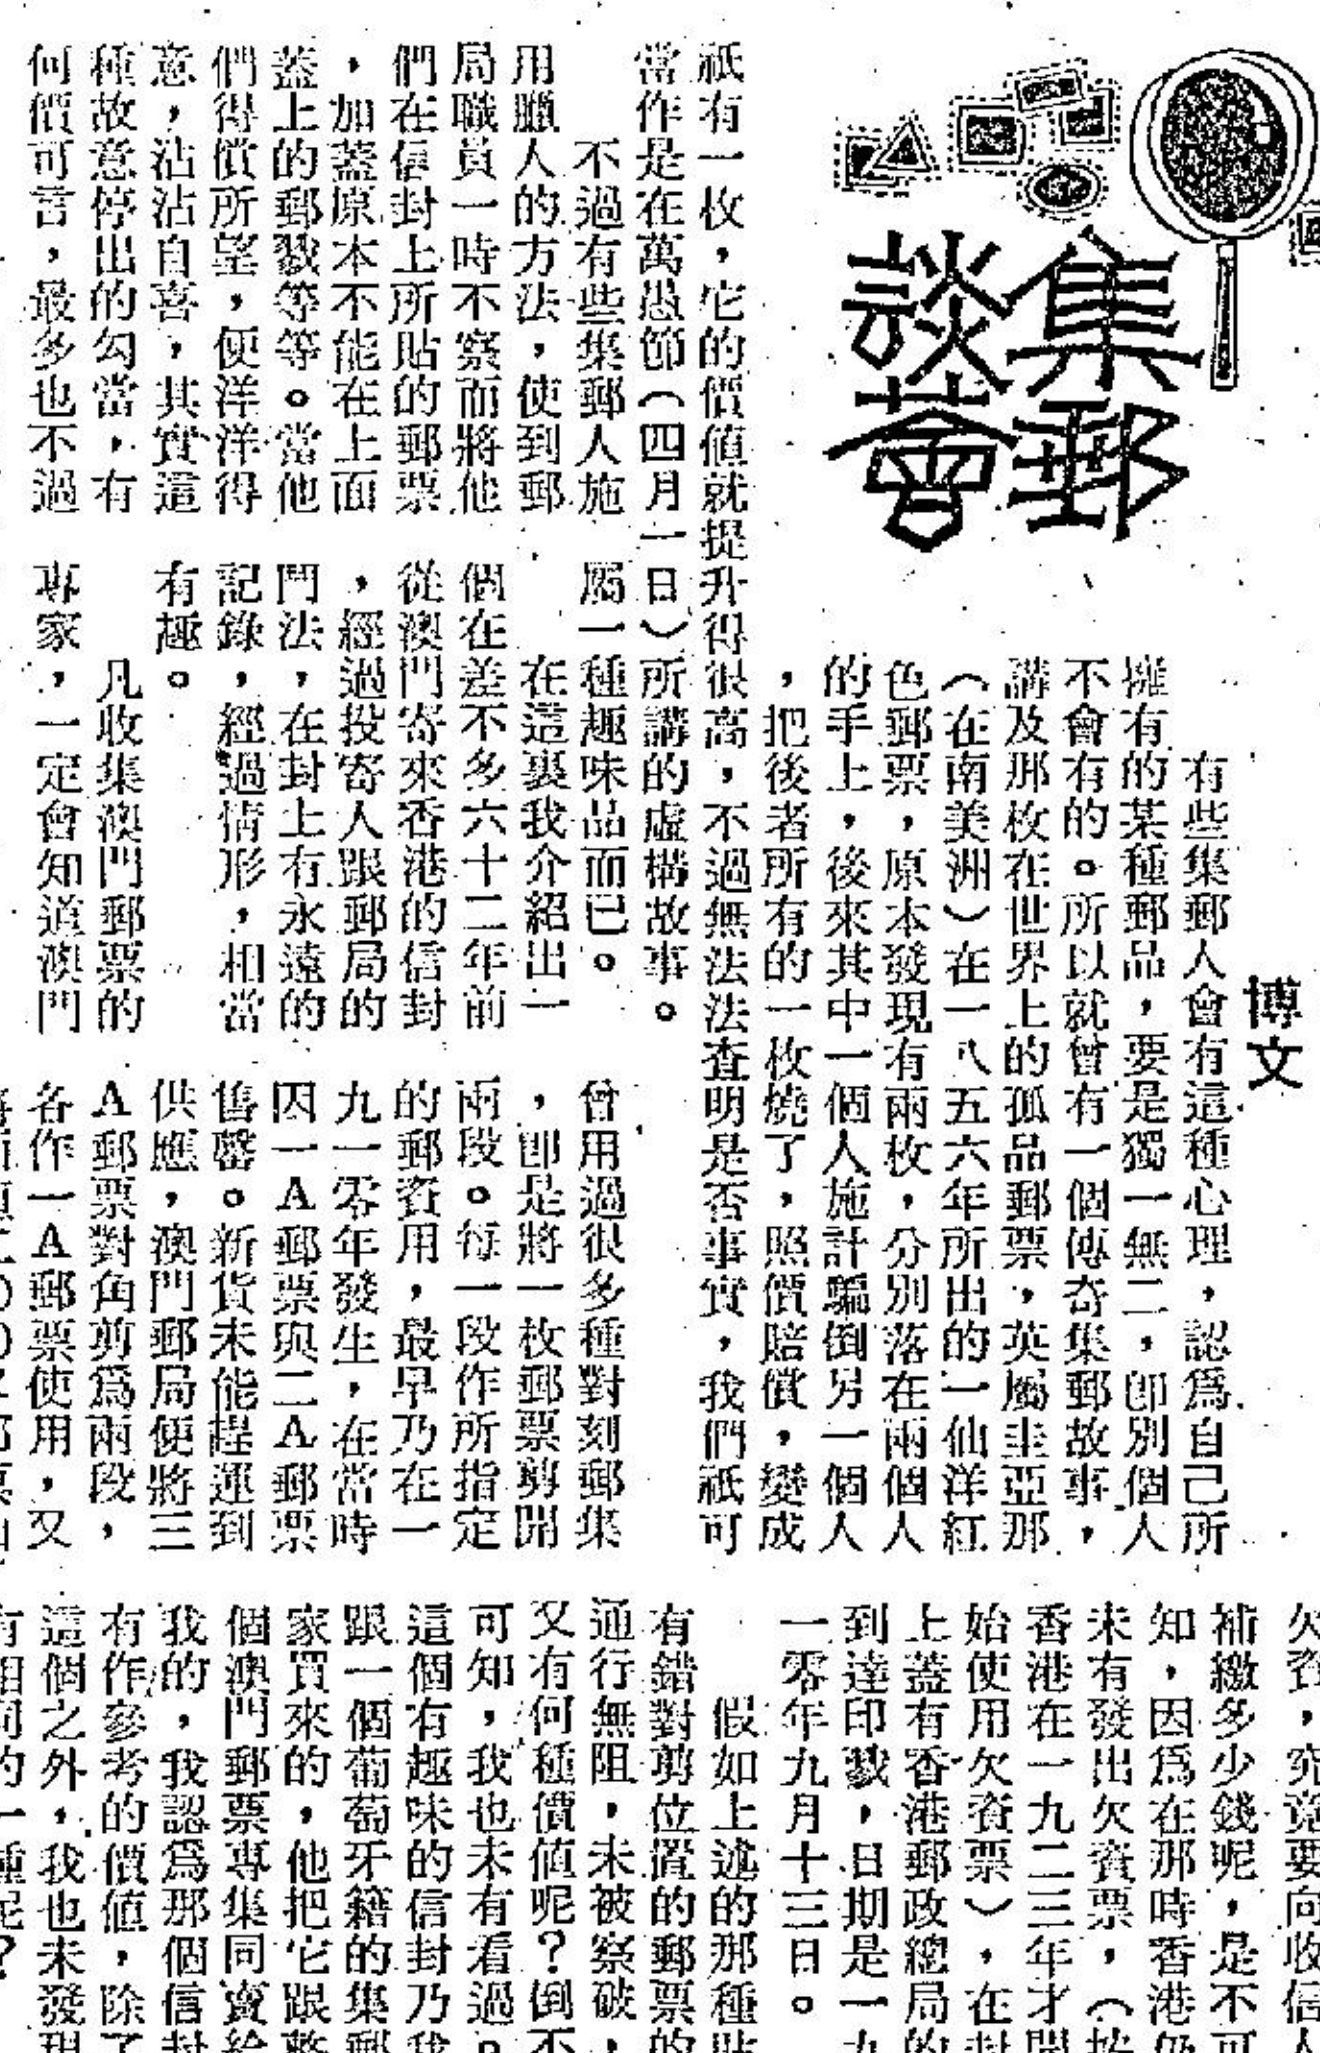 集郵
談薈
博文
有些集郵人會有這種心理，認爲自己所
擁有的某種郵品，要是獨一無二，卽別個人
不會有的。所以就曾有一個傳奇集郵故事，
講及那枚在世界上的孤品郵票，英屬圭亞那
（在南美洲）在一八五六年所出的一仙洋紅
色郵票，原本發現有兩枚，分別落在兩個人
的手上，後來其中一個人施計騙倒另一個人
，把後者所有的一枚燒了，照價賠償，變成
祇有一枚，它的價値就提升得很高，不過無法法査明是否事實，我們祇可
當作是在萬愚節（四月一日）所講的虛構故事。
不過有些集郵人施
用臘人的方法，使到郵
局職員一時不察而將他
們在信封上所貼的郵票
，加蓋原本不能在上面
蓋上的郵戳等等。當他
們得償所望，便洋洋得
意，沾沾自喜，其實這
種故意停出的勾當，有
何價可言，最多也不過
屬一種趣味品而已。
在這裏我介紹出一
個在差不多六十二年前
從澳門寄來香港的信封
，經過投寄人跟郵局的
鬥法，在封上有永遠的
記錄，經過情形，相當
有趣。
凡收集澳門郵票的
專家，一定會知道澳門
曾用過很多種對刻郵集
，卽是將一枚郵票剪開
兩段。每一段作所指定
的郵資用，最早乃在一
九一零年發生，在當時
因一A郵票與二A郵票
售罄。新貨未能趕運到
供應，澳門郵局便將三
A郵票對角剪爲兩段，
各作一A郵票使用，又
欠資，究竟要向收信人
補繳多少錢呢，是不可
知，因爲在那時香港仍
未有發出欠資票，（按
香港在一九二三年才開
始使用欠資票），在封
上蓋有香港郵政總局的
到達印戳，日期是一九
一零年九月十三日。
假如上述的那種貼
有錯對剪位置的郵票的
通行無阻，未被察破，
又有何種價値呢？倒不
可知，我也未有看過。
這個有趣味的信封乃我
跟一個葡萄牙籍的集郵
家買來的，他把它跟整
個澳門郵票專集同賣給
我的，我認爲那個信封
有作參考的價値，除了
這個之外，我也未發現
有相同的一種呢？